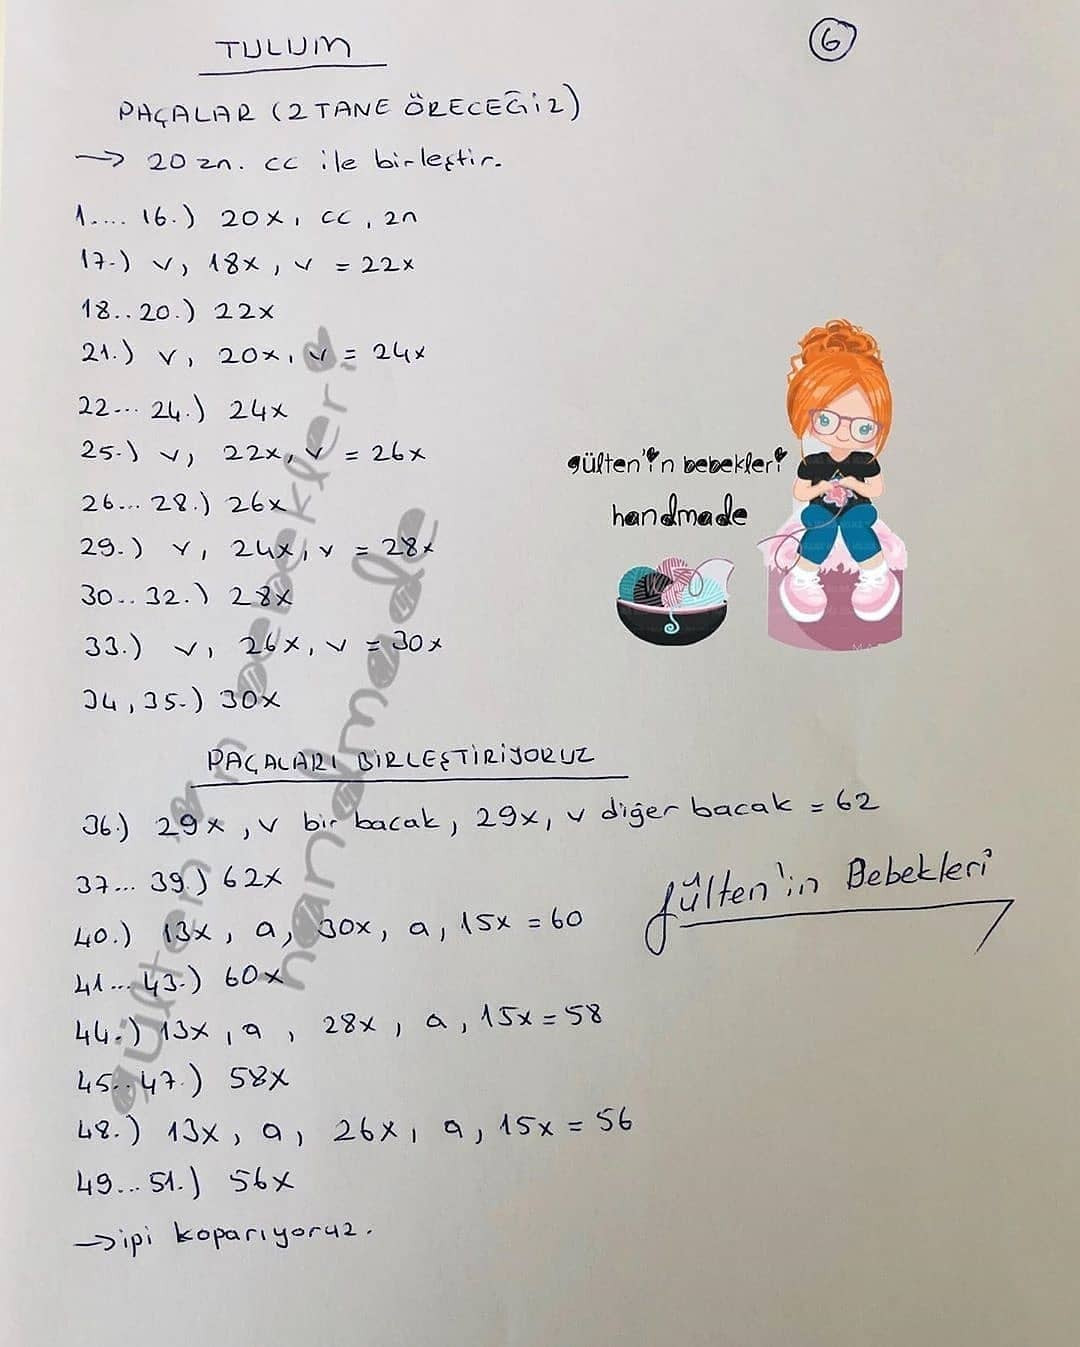 TULUM
6
PAÇALAR (2 TANE ÖRECEĞİZ)
→ 20 zn. cc ile birleştir.
1.... 16.) 20x, cc, zn
17.) v, 18x, v = 22x
18.. 20.) 22x
21.) v, 20x, v = 24x
22... 24.) 24x
25.) v, 22x, v = 26x
26... 28.) 26x
29.) v, 24x, v = 28x
30... 32.) 28x
33.) v, 26x, v = 30x
34, 35.) 30x
gülten'in bebekleri
handmade
PAÇALARI BİRLEŞTİRİYORUZ
36.) 29x, v bir bacak, 29x, v diğer bacak = 62
37... 39.) 62x
40.) 13x, a, 30x, a, 15x = 60
41... 43.) 60x
44.) 13x, a, 28x, a, 15x = 58
45.. 47.) 58x
48.) 13x, a, 26x, a, 15x = 56
49... 51.) 56x
→ ipi koparıyoruz.
Gülten'in Bebekleri
gülten'in bebekleri
handmade